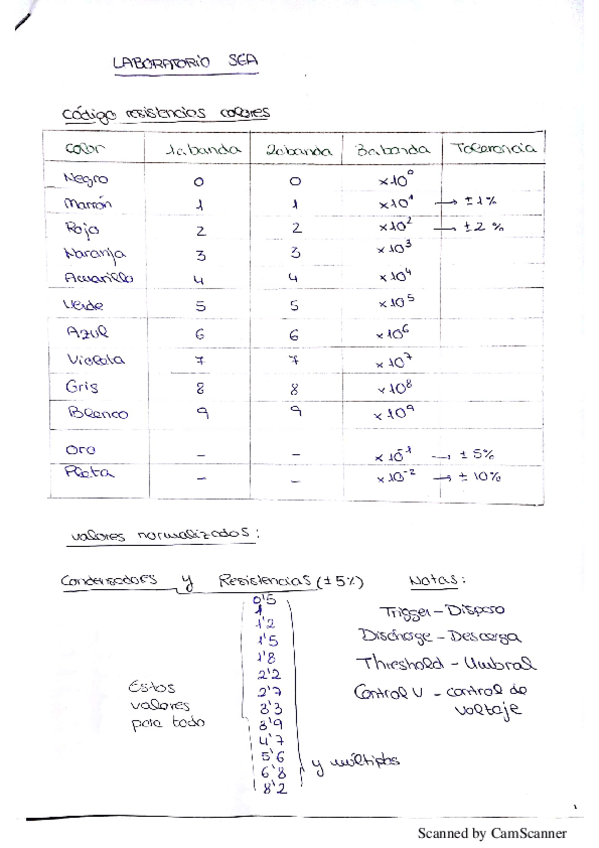 LABORATORIO SEA
Código resistencias colores
Color 1a banda 2a banda 3a banda Tolerancia
Negro 0 0 x10⁰
Marrón 1 1 x10¹ → ±1%
Rojo 2 2 x10² → ±2%
Naranja 3 3 x10³
Amarillo 4 4 x10⁴
Verde 5 5 x10⁵
Azul 6 6 x10⁶
Violeta 7 7 x10⁷
Gris 8 8 x10⁸
Blanco 9 9 x10⁹
Oro – – x10⁻¹ → ±5%
Plata – – x10⁻² → ±10%
valores normalizados:
Condensadores y Resistencias (±5%)
0'5
1
1'2
1'5
1'8
2'2
2'7
3'3
3'9
4'7
5'6
6'8
8'2
Estos
valores
para todo
y múltiplos
Notas:
Trigger – Disparo
Discharge – Descarga
Threshold – Umbral
Control V – control de
voltaje
1
Scanned by CamScanner